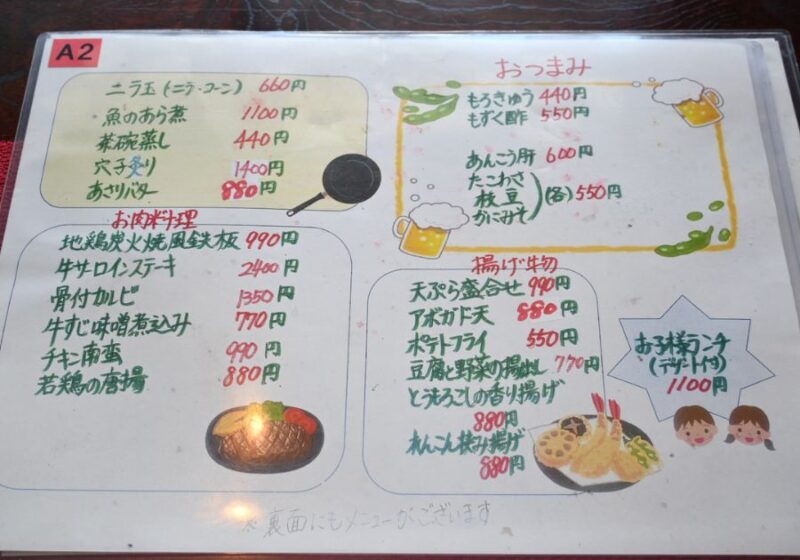 A2
ニラ玉(ニラ・コーン) 660円
魚のあら煮 1100円
茶碗蒸し 440円
穴子炙り 1400円
あさりバター 880円
お肉料理
地鶏炭火焼風鉄板 990円
牛サロインステーキ 2400円
骨付カルビ 1350円
牛すじ味噌煮込み 770円
チキン南蛮 990円
若鶏の唐揚 880円
おつまみ
もろきゅう 440円
もずく酢 550円
あんこう肝 600円
たこわさ
枝豆 (各)550円
かにみそ
揚げ物
天ぷら盛合せ 990円
アボガド天 880円
ポテトフライ 550円
豆腐と野菜の揚出し 770円
とうもろこしの香り揚げ
880円
れんこん挟み揚げ
880円
お子様ランチ
(デザート付)
1100円
※裏面にもメニューがございます